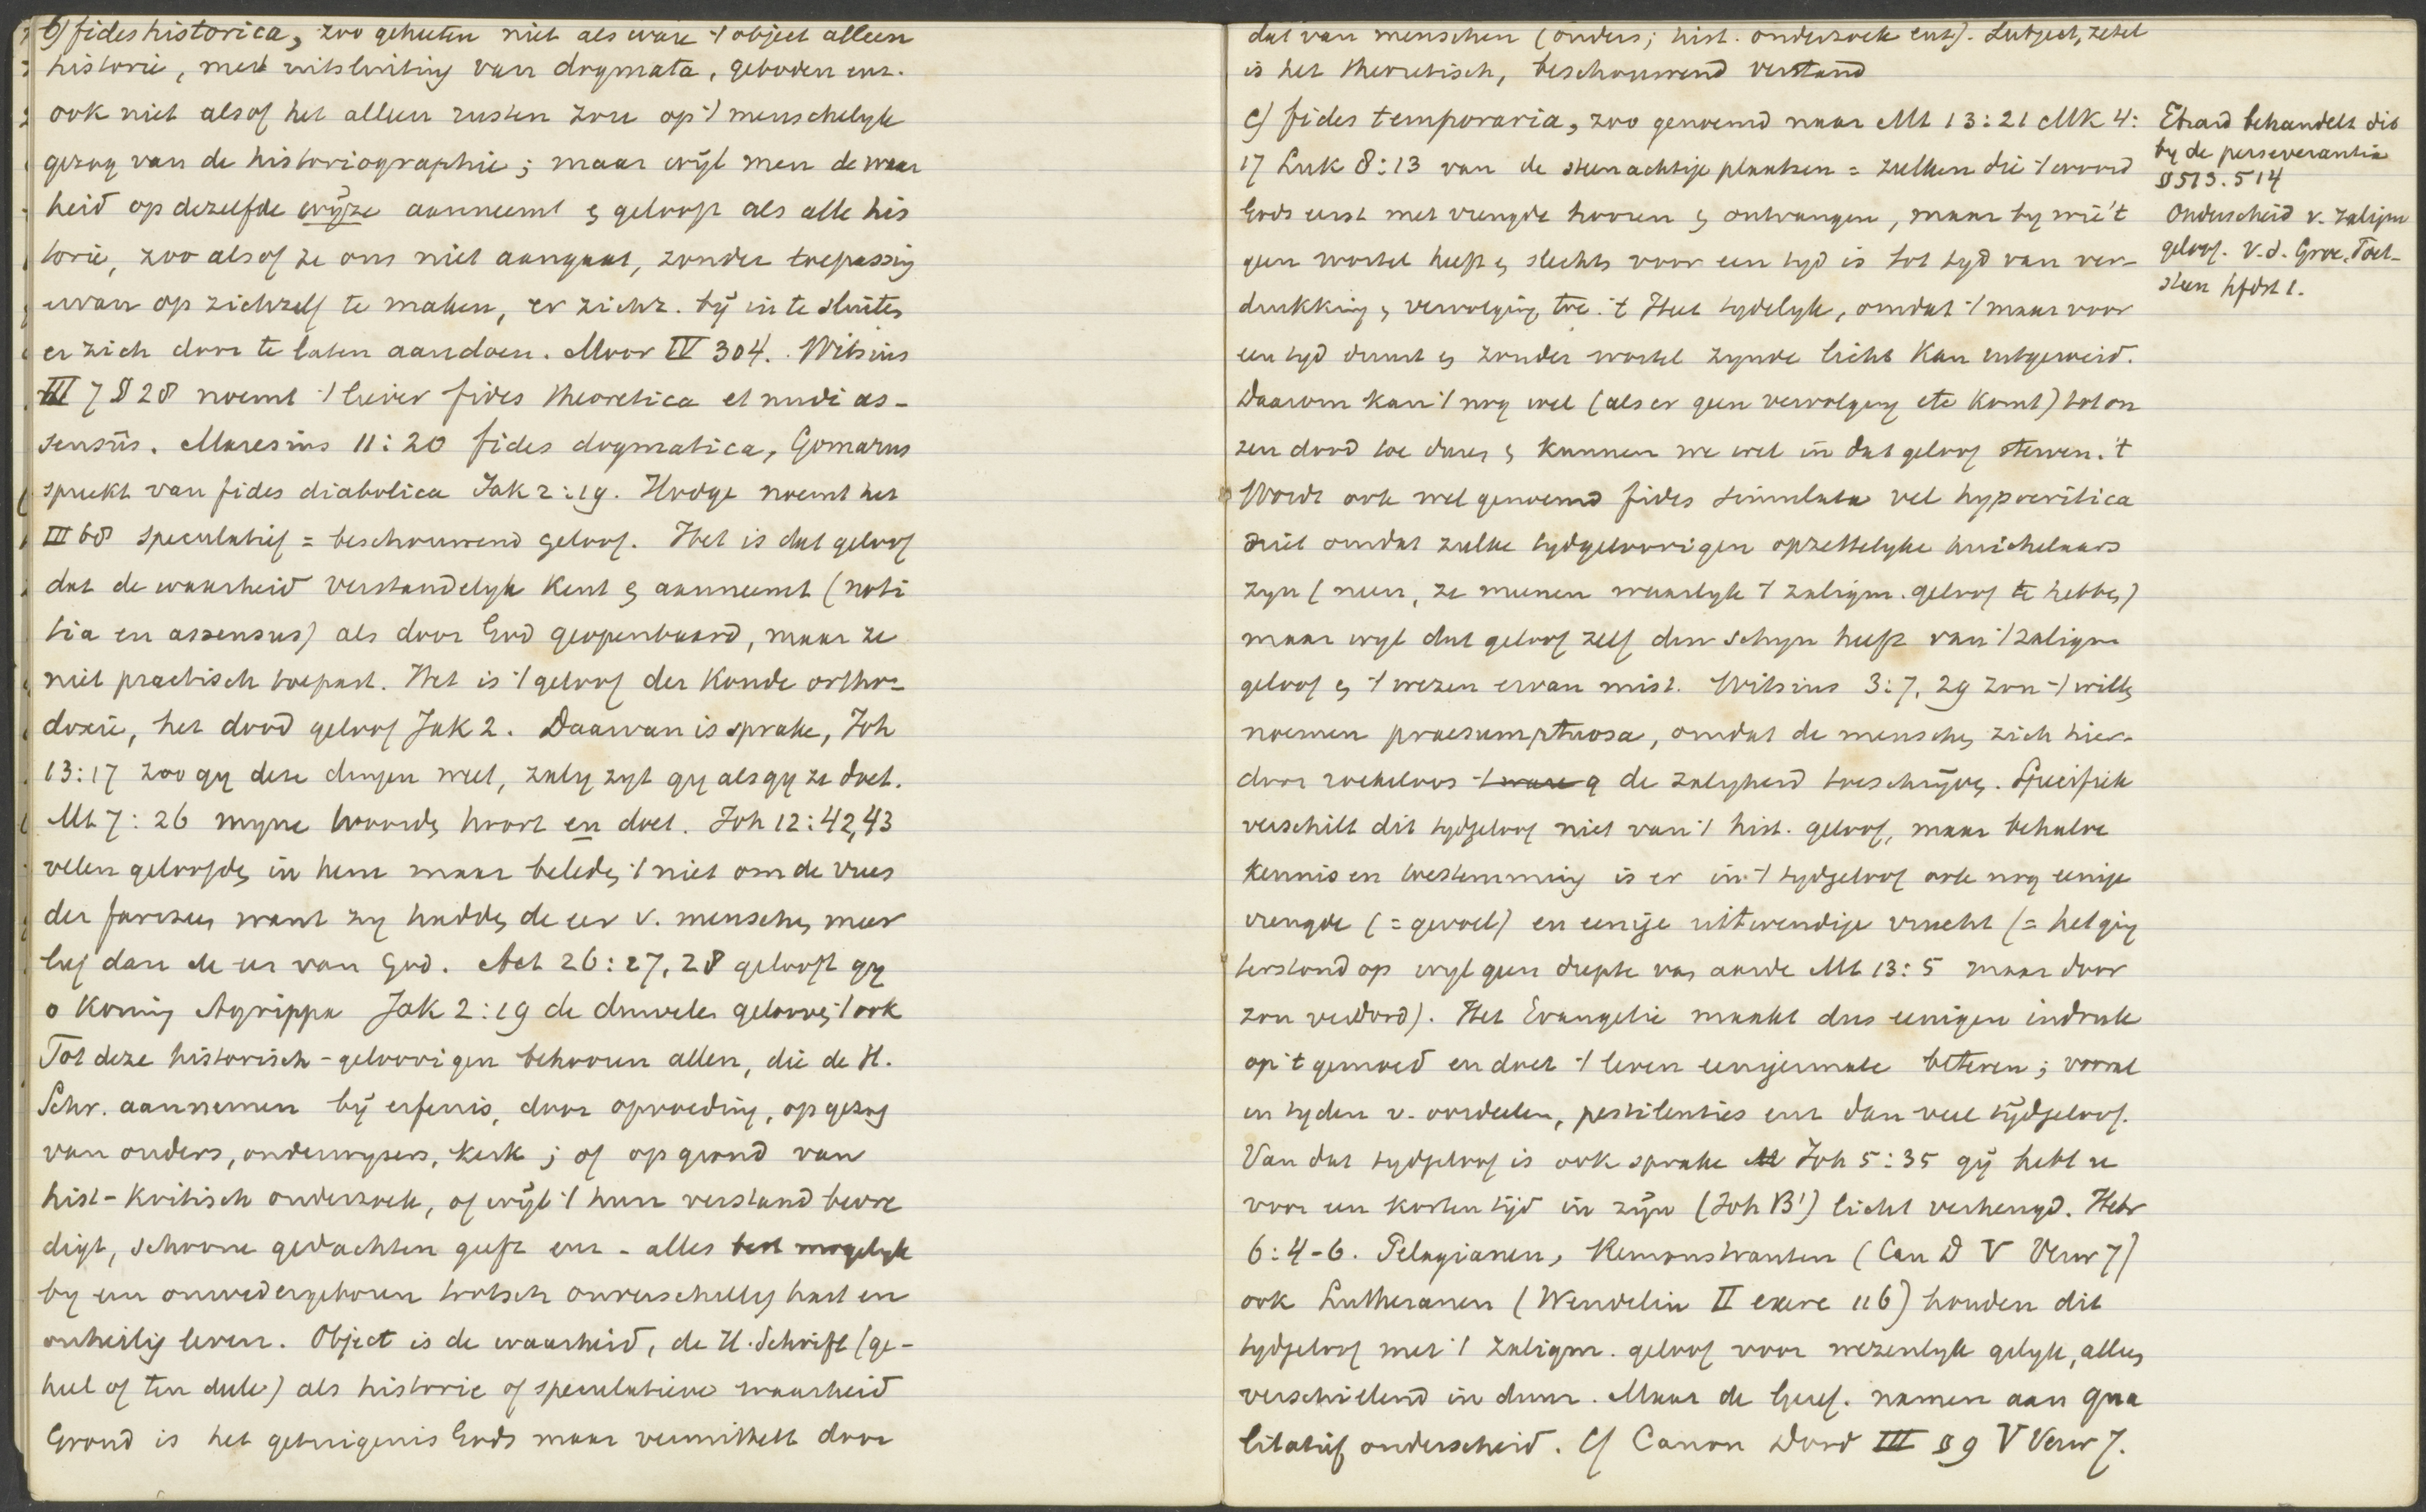 b) fides historica, zoo geheeten niet als ware 't object alleen
historie, met uitsluiting van dogmata, geboden enz.
ook niet alsof het alleen rusten zou op 't menschelyk
gezag van de historiographie; maar wyl men de waar
heid op dezelfde wyze aanneemt & gelooft als alle his
torie, zoo alsof ze ons niet aangaat, zonder toepassing
ervan op zichzelf te maken, er zichz. by in te sluiten
er zich door te laten aandoen. Moor IV 304. Witsius
III 7 § 28 noemt 't liever fides theoretica et nudi as-
sensûs. Maresius 11:20 fides dogmatica, Gomarus
spreekt van fides diabolica Jak 2:19. Hodge noemt het
III 68 speculatief = beschouwend geloof. Het is dat geloof
dat de waarheid verstandelyk kent & aanneemt (noti
tia en assensus) als door God geopenbaard, maar ze
niet practisch toepast. Het is 't geloof der koude ortho-
doxie, het dood geloof Jak 2. Daarvan is sprake, Joh
13:17 zoo gy deze dingen weet, zalig zyt gy als gy ze doet.
Mt 7:26 myne woorden hoort en doet. Joh 12:42,43
velen geloofden in hem maar beleden 't niet om de vrees
der farizeen want zy hadden de eer v. menschen meer
lief dan de eer van God. Act 26:27,28 gelooft gy
o koning Agrippa Jak 2:19 de duivelen gelooven 't ook
Tot deze historisch-geloovigen behooren allen, die de H.
Schr. aannemen by erfenis, door opvoeding, op gezag
van ouders, onderwyzers, kerk; of op grond van
hist-kritisch onderzoek, of wyl 't hun verstand bevre
digt, schoone gedachten geeft enz - alles best mogelyk
by een onwedergeboren trotsch onverschillig hart en
onheilig leven. Object is de waarheid, de H. Schrift (ge-
heel of ten deele) als historie of speculatieve waarheid
Grond is het getuigenis Gods maar vermittelt door
dat van menschen (ouders; hist. onderzoek enz). Subject, zetel
is het theoretisch, beschouwend verstand
c) fides temporaria, zoo genoemd naar Mt 13:21 Mk 4:
17 Luk 8:13 van de steenachtige plaatsen = zulken die 't woord
Gods eerst met vreugde hooren & ontvangen, maar by wie 't
geen wortel heeft & slechts voor een tyd is tot tyd van ver-
drukking & vervolging toe. 't Heet tydelyk, omdat 't maar voor
een tyd duurt & zonder wortel zynde licht kan uitgeroeid.
Daarom kan 't nog wel (als er geen vervolging etc komt) tot on
zen dood toe duren & kunnen we wel in dat geloof sterven. 't
Wordt ook wel genoemd fides simulata vel hypocritica
niet omdat zulke tydgeloovigen opzettelyke huichelaars
zyn (neen, ze meenen waarlyk 't zaligm. geloof te hebben)
maar wyl dat geloof zelf den schyn heeft van 't zaligm
geloof & 't wezen ervan mist. Witsius 3:7, 29 zou 't willen
noemen praesumptuosa, omdat de menschen zich hier-
door roekeloos de zaligheid toeschryven. Specifiek
verschilt dit tydgeloof niet van 't hist. geloof, maar behalve
kennis en toestemming is er in 't tydgeloof ook nog eenige
vreugde (= gevoel) en eenige uitwendige vrucht (= het ging
terstond op wyl geen diepte van aarde Mt 13:5 maar door
zon verdord). Het Evangelie maakt dus eenigen indruk
op 't gemoed en doet 't leven eenigermate beteren; vooral
in tyden v. oordeelen, pestilenties enz dan veel tydgeloof.
Van dat tydgeloof is ook sprake Joh 5:35 gy hebt u
voor een korten tyd in zyn (Joh B') licht verheugd. Hebr
6:4-6. Pelagianen, Remonstranten (Can D V Verw 7)
ook Lutheranen (Wendelin II exerc 116) houden dit
tydgeloof met 't zaligm. geloof voor wezenlyk gelyk, alleen
verschillend in duur. Maar de Geref. namen aan qua
litatief onderscheid. Cf Canon Dord III § 9 V Verw 7.
Ebrard behandelt dit
by de perseverantia
§ 513. 514
Onderscheid v. zaligm
geloof. v.d. Groe, Toet-
steen hfdst 1.